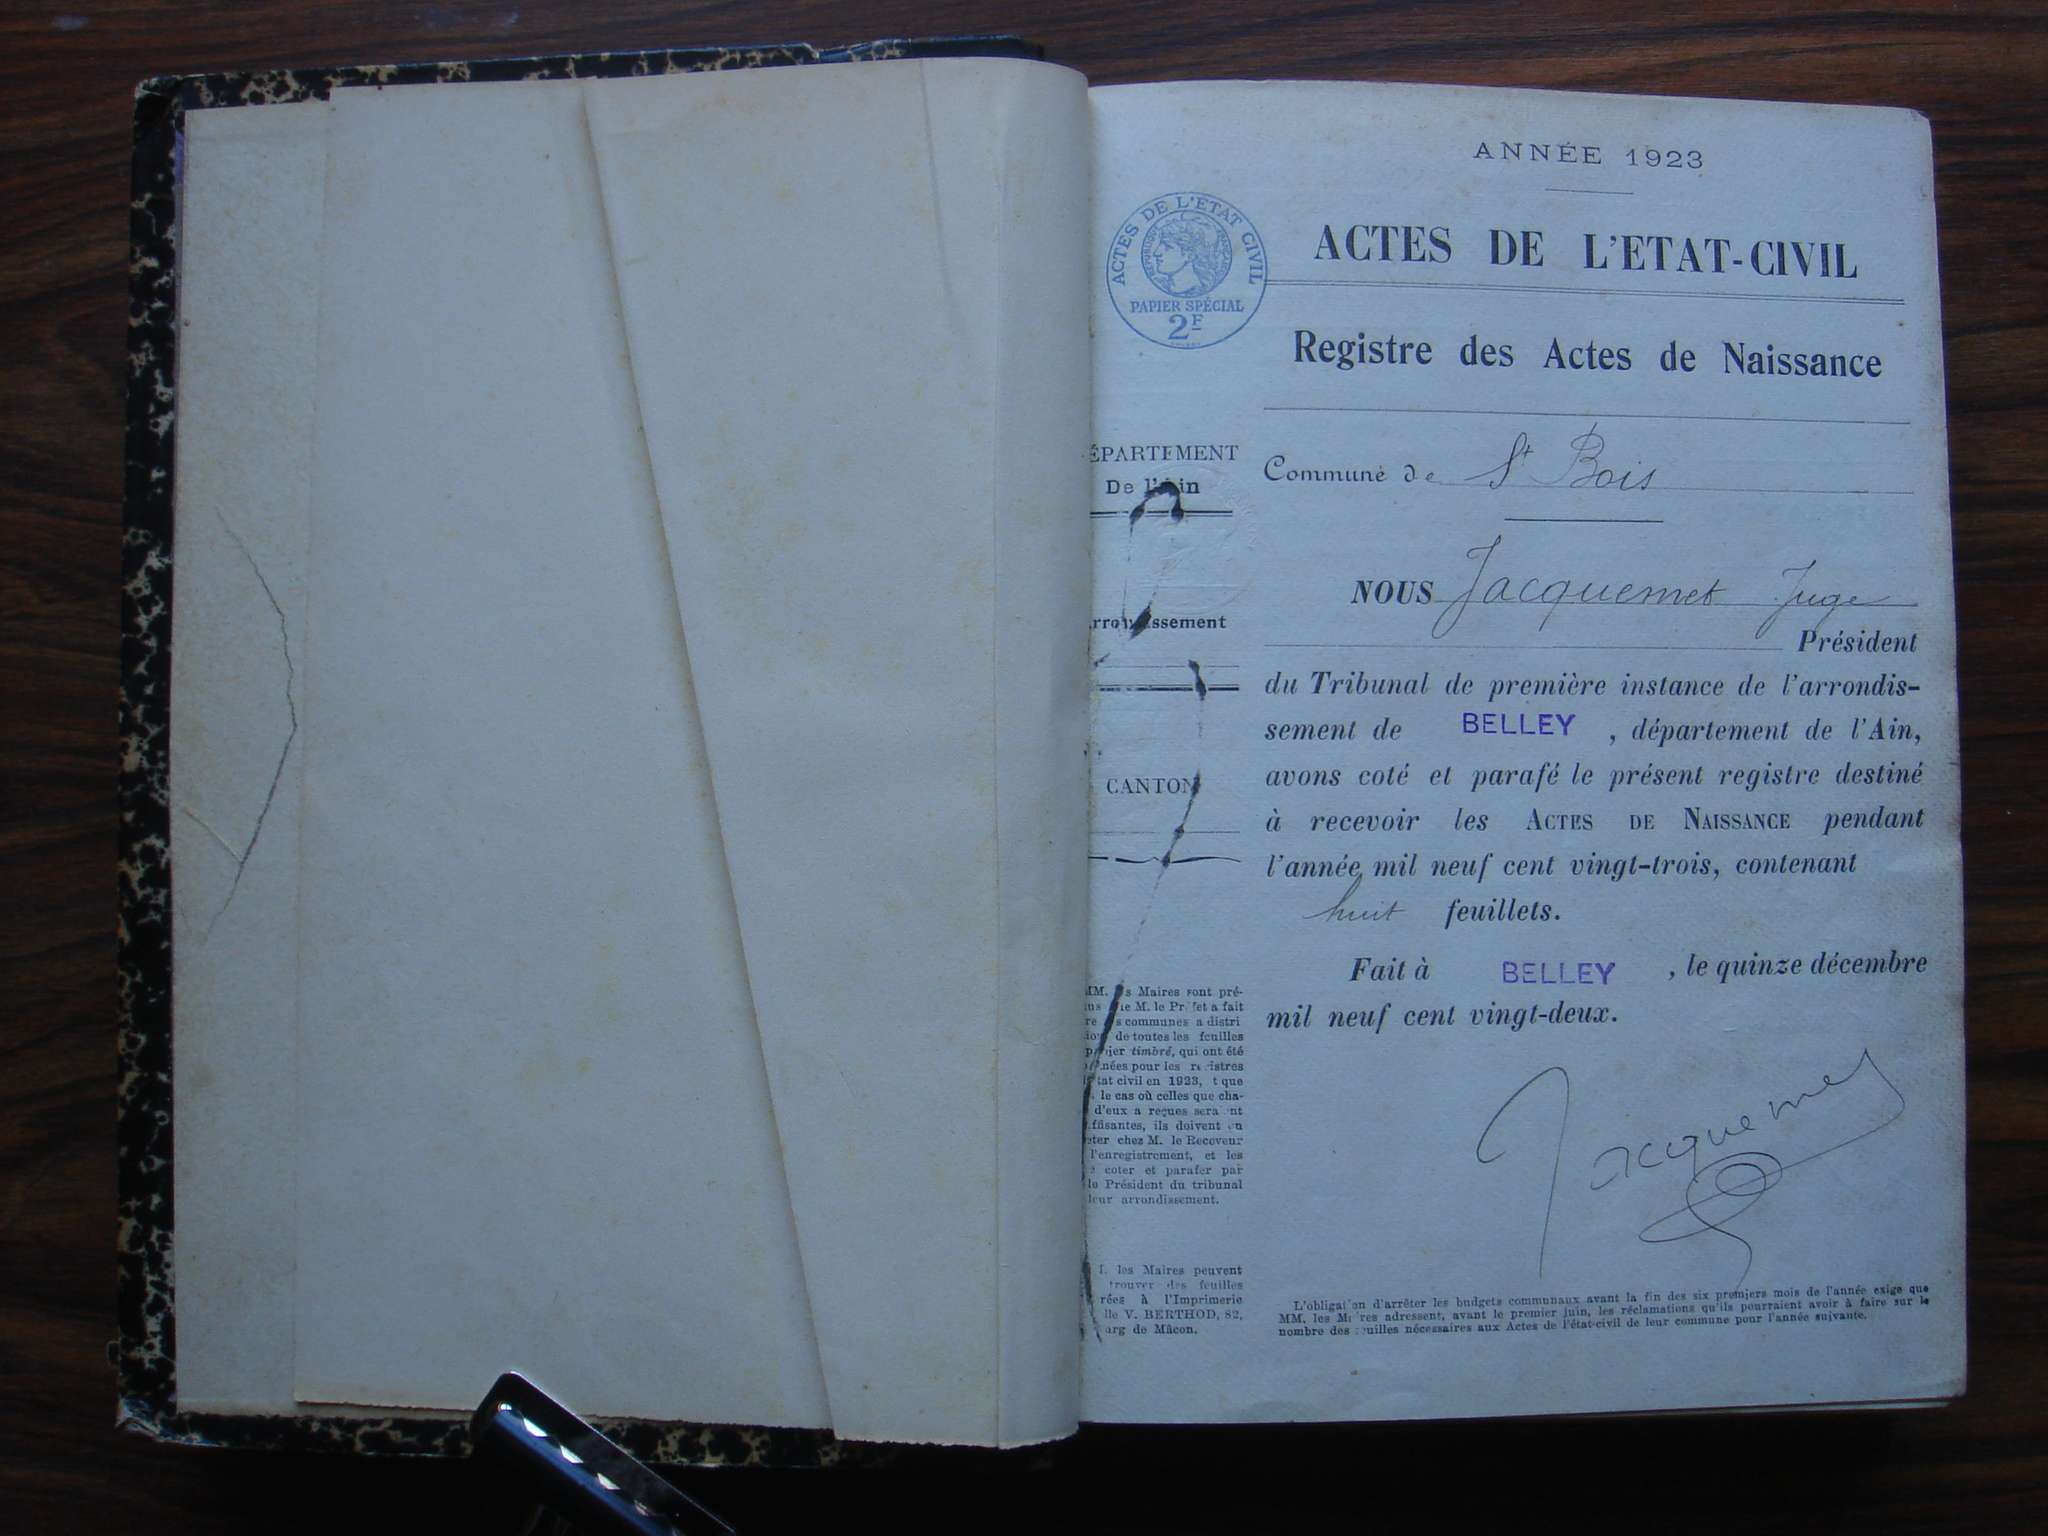 ANNÉE 1923
ACTES DE L'ETAT CIVIL
RÉPUBLIQUE FRANÇAISE
PAPIER SPÉCIAL
2F
ACTES DE L'ETAT-CIVIL
Registre des Actes de Naissance
ÉPARTEMENT
De l'Ain
rrondissement
CANTON
Commune de St Bois
NOUS Jacquemet Juge
Président
du Tribunal de première instance de l'arrondis-
sement de BELLEY , département de l'Ain,
avons coté et parafé le présent registre destiné
à recevoir les ACTES DE NAISSANCE pendant
l'année mil neuf cent vingt-trois, contenant
huit feuillets.
Fait à BELLEY , le quinze décembre
mil neuf cent vingt-deux.
Jacquemet
MM. les Maires sont pré-
que M. le Préfet a fait
communes a distri
de toutes les feuilles
timbré, qui ont été
nées pour les registres
tat civil en 1923, et que
le cas où celles que cha-
d'eux a reçues seraient
ffisantes, ils doivent en
chez M. le Receveur
l'enregistrement, et les
coter et parafer par
le Président du tribunal
leur arrondissement.
les Maires peuvent
trouver des feuilles
rées à l'Imprimerie
lle V. BERTHOD, 82,
urg de Mâcon.
L'obligation d'arrêter les budgets communaux avant la fin des six premiers mois de l'année exige que
MM. les Maires adressent, avant le premier juin, les réclamations qu'ils pourraient avoir à faire sur le
nombre des feuilles nécessaires aux Actes de l'état-civil de leur commune pour l'année suivante.